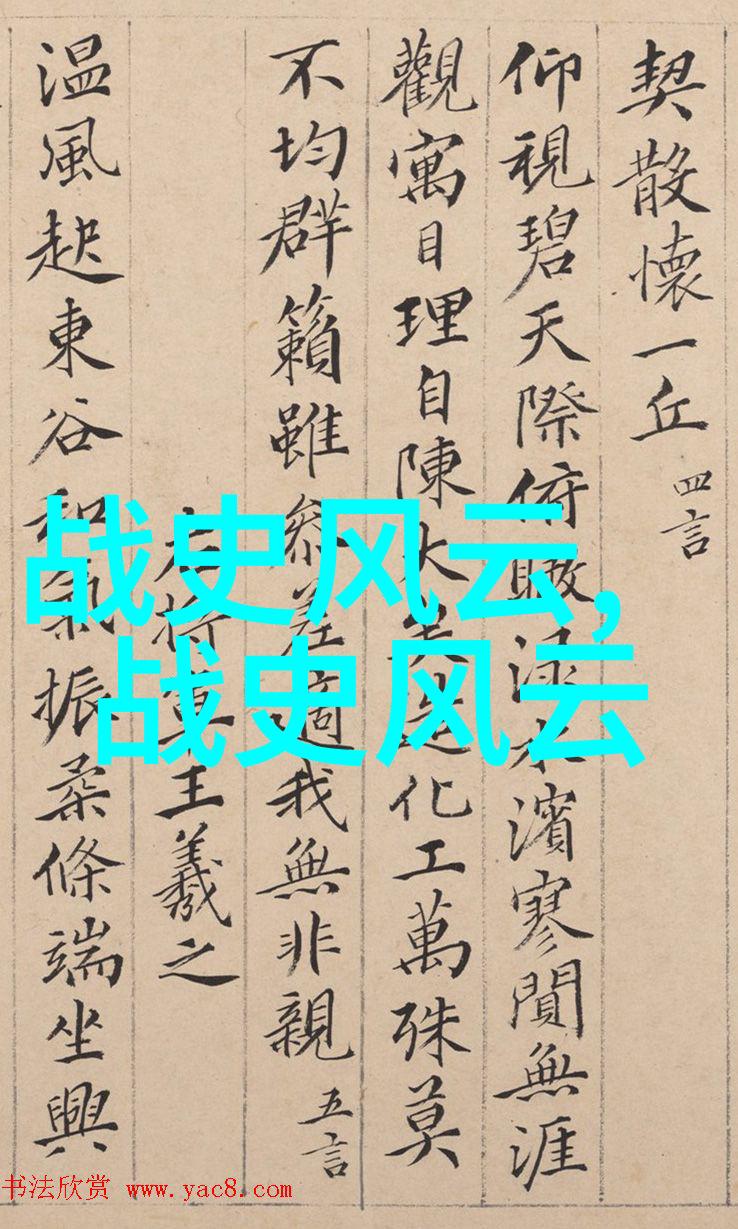 契散懷一丘 四言
仰視碧天際俯瞰渌水濱寥閴無涯
觀寓目理自陳大矣造化工萬殊莫
不均群籟雖參差適我無非親 五言
右將軍王羲之
温風起東谷和氣振柔條端坐興
战史风云,
战史风云
书法欣赏 www.yac8.com